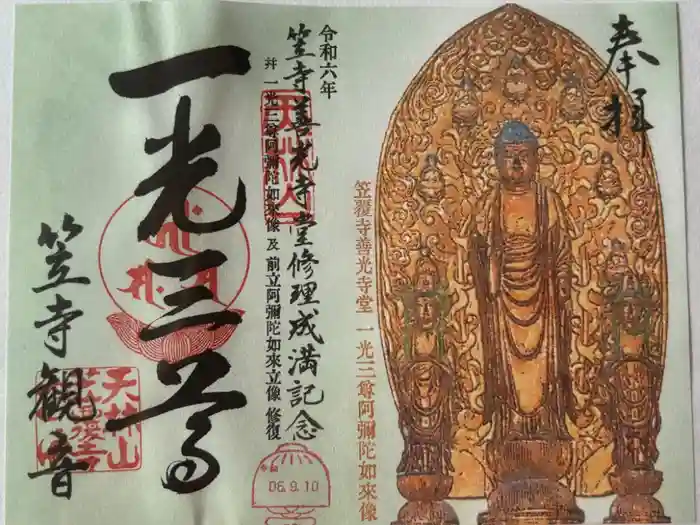 奉拝
笠覆寺善光寺堂 一光三尊阿彌陀如來像
令和六年
笠寺善光寺堂修理成満記念
并 一光三尊阿彌陀如來像 及 前立阿彌陀如來立像 修復
06.9.10
一光三尊
笠寺観音
天林山